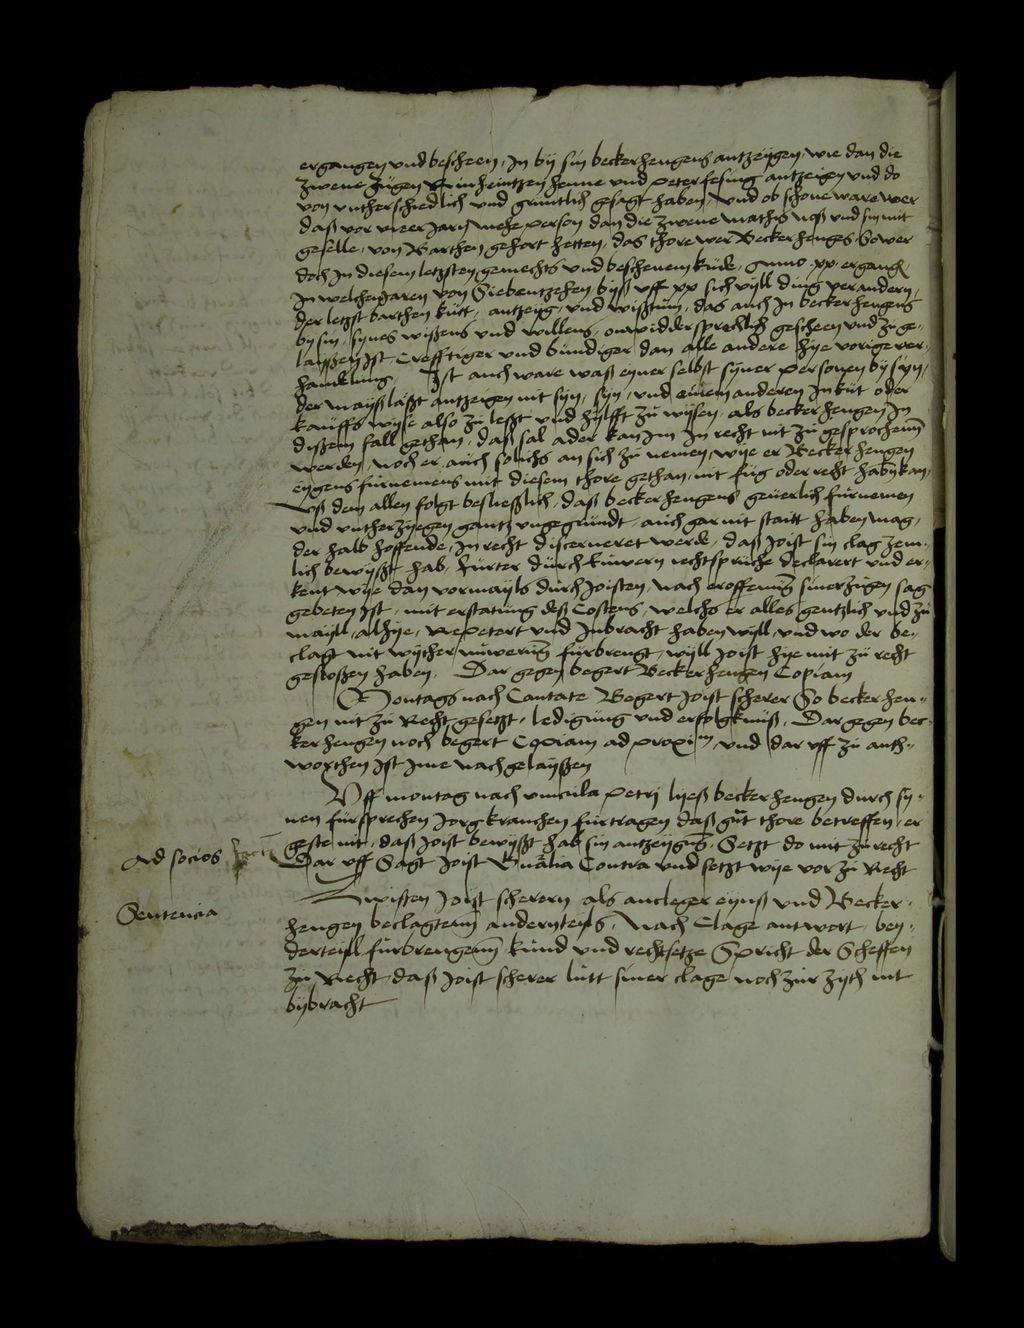 ergangen vnd bescheen, Jn by sin beckerhengens antzeygen, wie dan die
zwene zugen heintzen henne vnd peter fesing antzeigen vnd do
von vntherschiedlich vnd gruntlich gesagt haben, vnd ob schone ware wer
daß vor vier Jarn mehe person dan die zwene mathis noß vnd sin mit
geselle, von Barthen gehort hetten, das thore wer Becker henges, So wer
doch Jn diesem letzsten gemechts vnd bescheenem kude, anno xx ergangen
Jn welchen Jaren von Siebentzehen byß vff xx sich vyll ding verandern,
der letzst barthen kutt, antzeig, vnd wißtum, das auch Jn beckerhengens
by sin, synes wißens vnd willens, onwiddersprechlich gescheen vnd zuge-
laißzen Jst Crefftiger vnd bundiger dan alle andere hye vorige ver-
handlung Jst auch ware waß eyner selbst syner personen by syn,
der mayß laßt antzeigen nit syn, syn, vnd einem anderen Jn kut oder
kauffs wyse also zu leßt vnd hylfft zu wysen, als beckerhengen Jn
dißem fall gethan, daß sal ader kan Jm Jn recht nit zu gesprochenn
werden, noch er auch solichs an sich zu nemen, wye er Beckerhengen
eygens furnemens mit diesem thore gethan, mit fug oder recht haben kan,
Vß dem allen folgt besließlich, daß beckerhengens geuerlich furnemen
vnd vntherzyegen gantz vngegrundt, auch gar nit staitt haben mag,
der halb hoffende, Jn recht discerneret werde, daß Joist sin clag zem-
lich bewyßt hab, furter durch euwern rechtspruche declarert vnd er-
kent wye dan vormayls durch Joisten, nach eroffenung siner zugen sag
gebeten Jst, mit erstatung deß Costens, welchs er alles gentzlich vnd zu
mayll, alhye, repetert vnd Jnbracht haben wyll, vnd wo der be-
clagt nit wycher nuwerung furbrengt, wyll Joist hye mit zu recht
gesloßen haben, Dar gegen begert Beckerhengen Copiam
Montags nach Cantate Begert Joist scherer So beckerhen-
gen nit zu Recht gesetzt, ledigung vnd erfolgknuß, Dar gegen bec-
ker hengen noch begert Copiam ad proximum, vnd dar vff zu anth-
worthen Jst ime nach gelayßen
Vff montag nach vincula petrj ließ beckerhengen durch sy-
nen fursprechen Jorg kranchen furtragen daß gut thore betreffen, er
geste nit, daß Joist bewyßt hab sin antzeigung, Setzt do mit zu recht
Ad socios
Dar vff Sagt Joist Gnalia Contra vnd setzt wye vor zu Recht
Zwisten Joist scherern als ancleger eynß vnd Becker-
Sentencia
hengen beclagtenn anderntheyls, Nach Clage antwort, bey-
derteyll furbrengenn kund vnd rechtsetze Spricht der Scheffen
zu Recht daß Joist scherer lutt siner clage noch zur zyth nit
bybracht